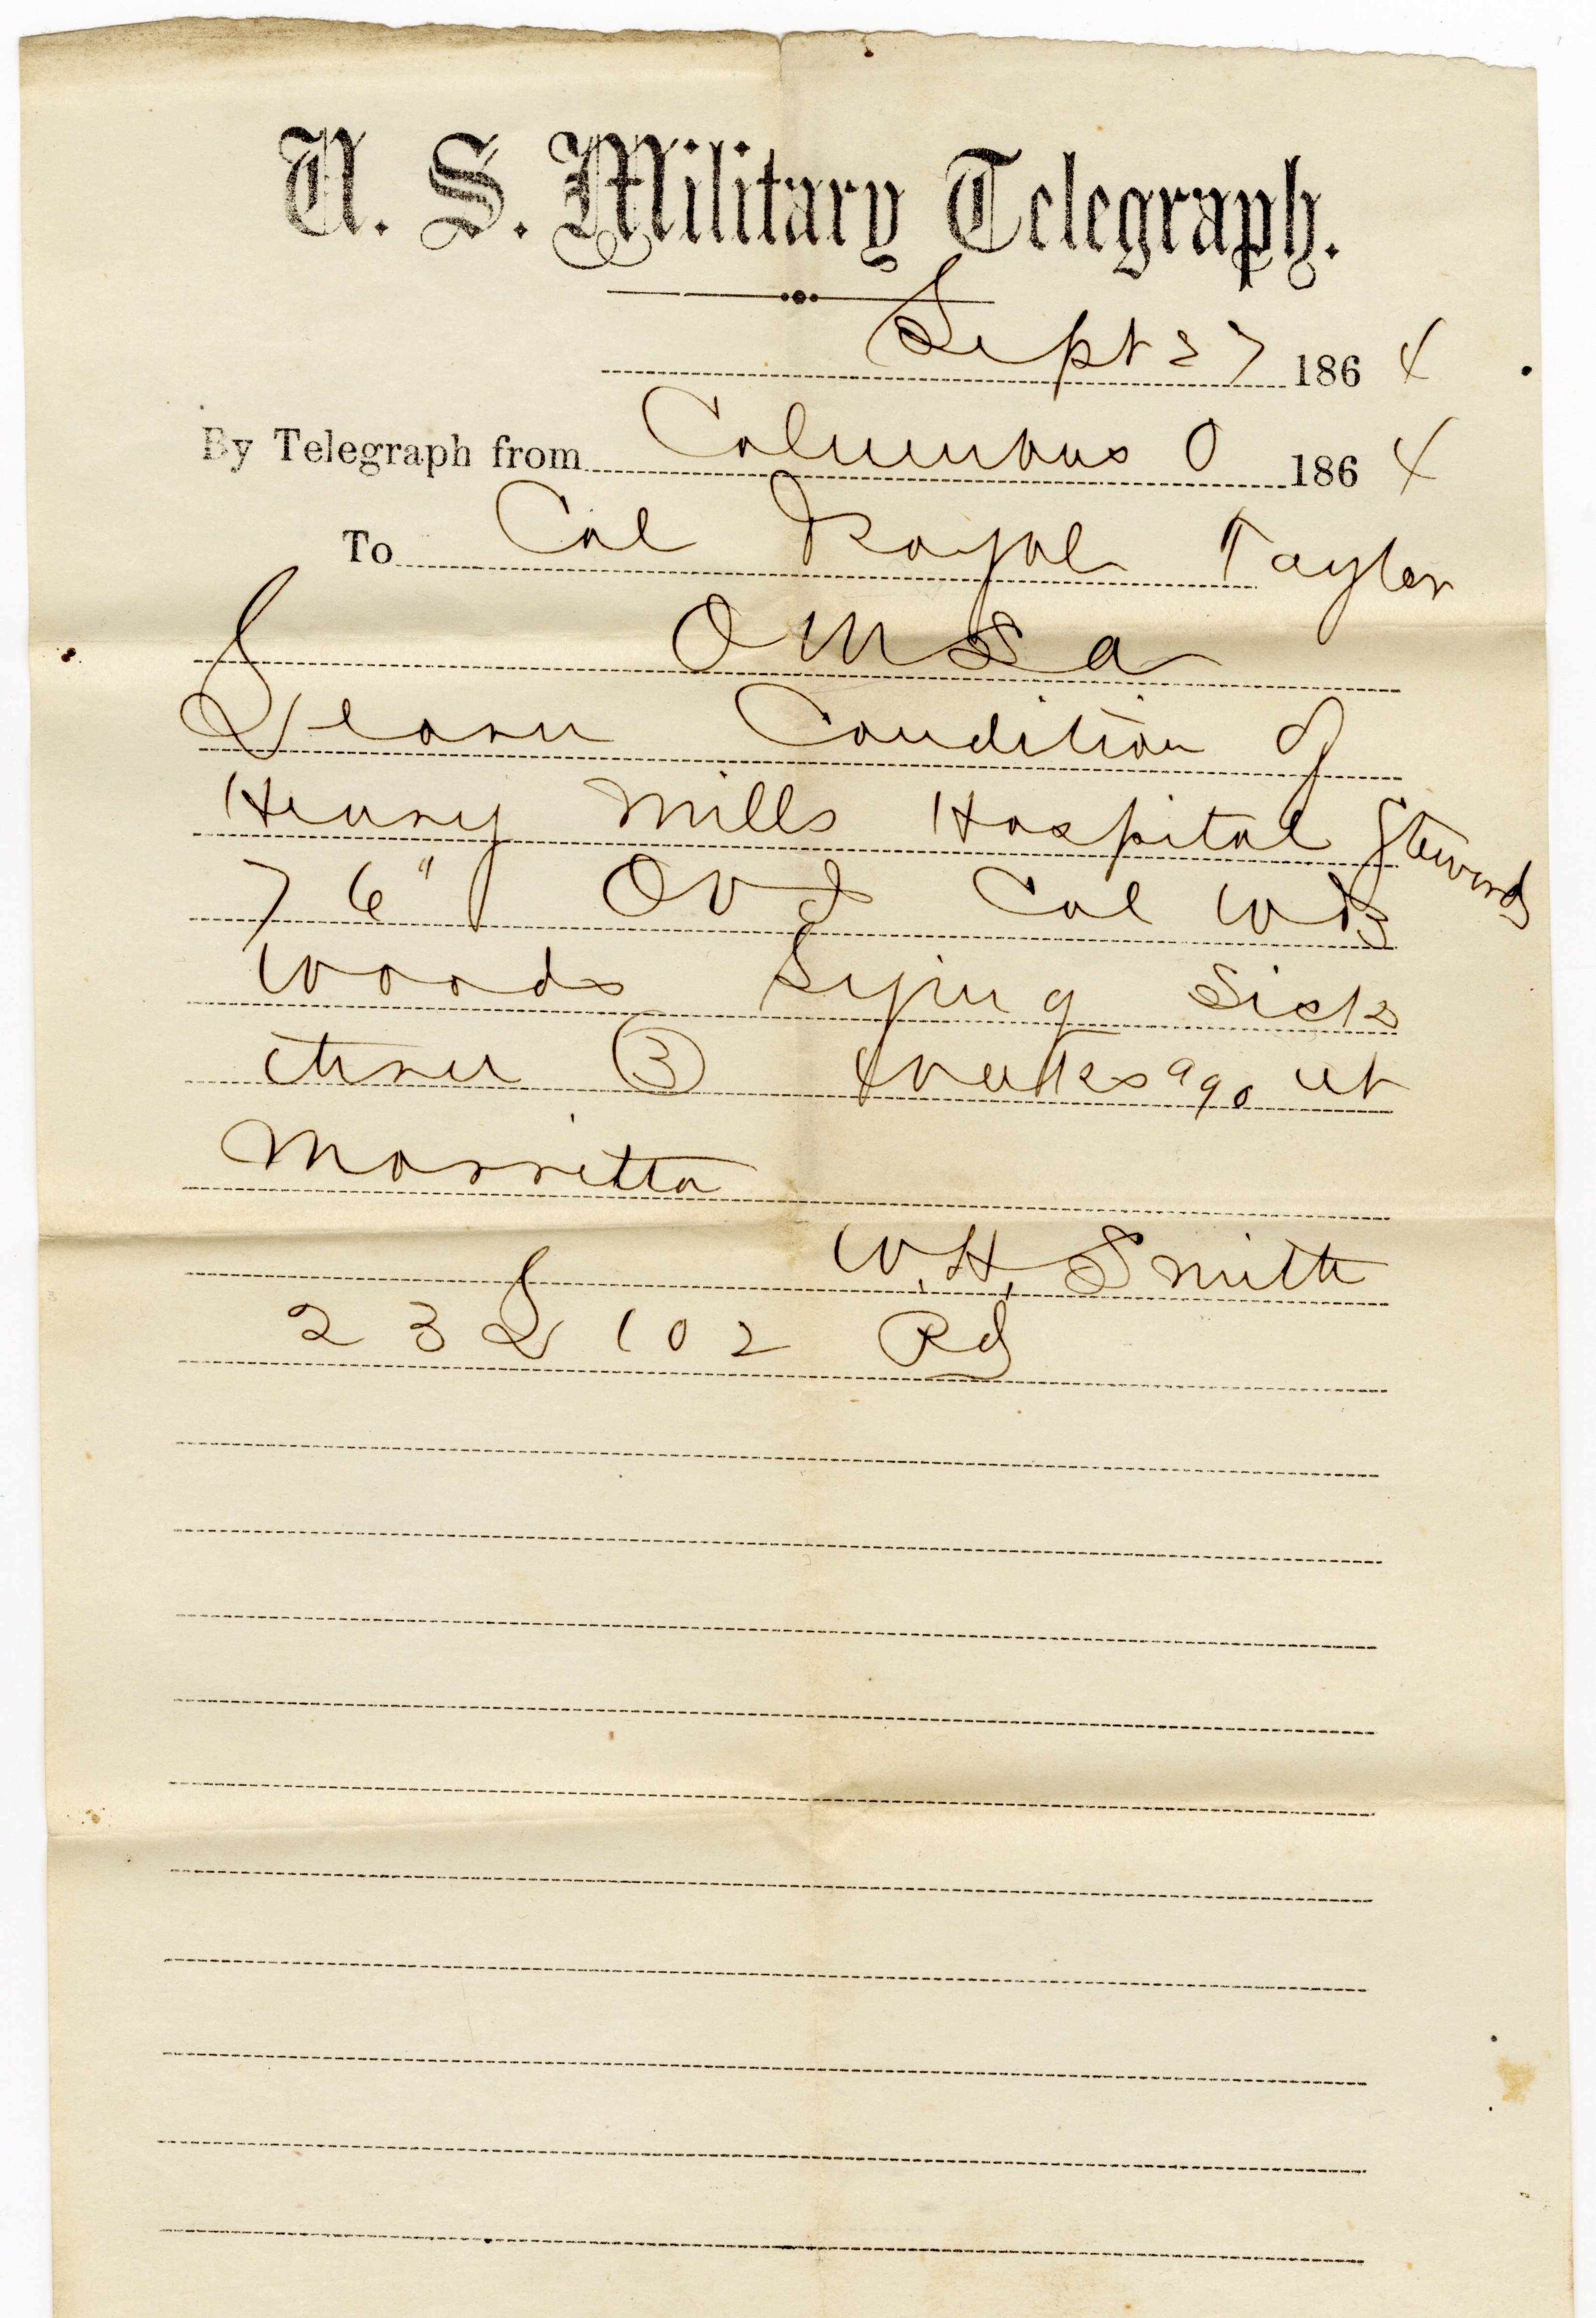 U. S. Military Telegraph.
Sept 27 1864
By Telegraph from Columbus O 1864
To Col Royal Taylor
O M S A
Learn Condition of
Henry Mills Hospital Steward
76" OVI Col WB
Woods Lying Sick
three (3) weeks ago at
Marritta
W.H. Smith
23 L 102 Pd